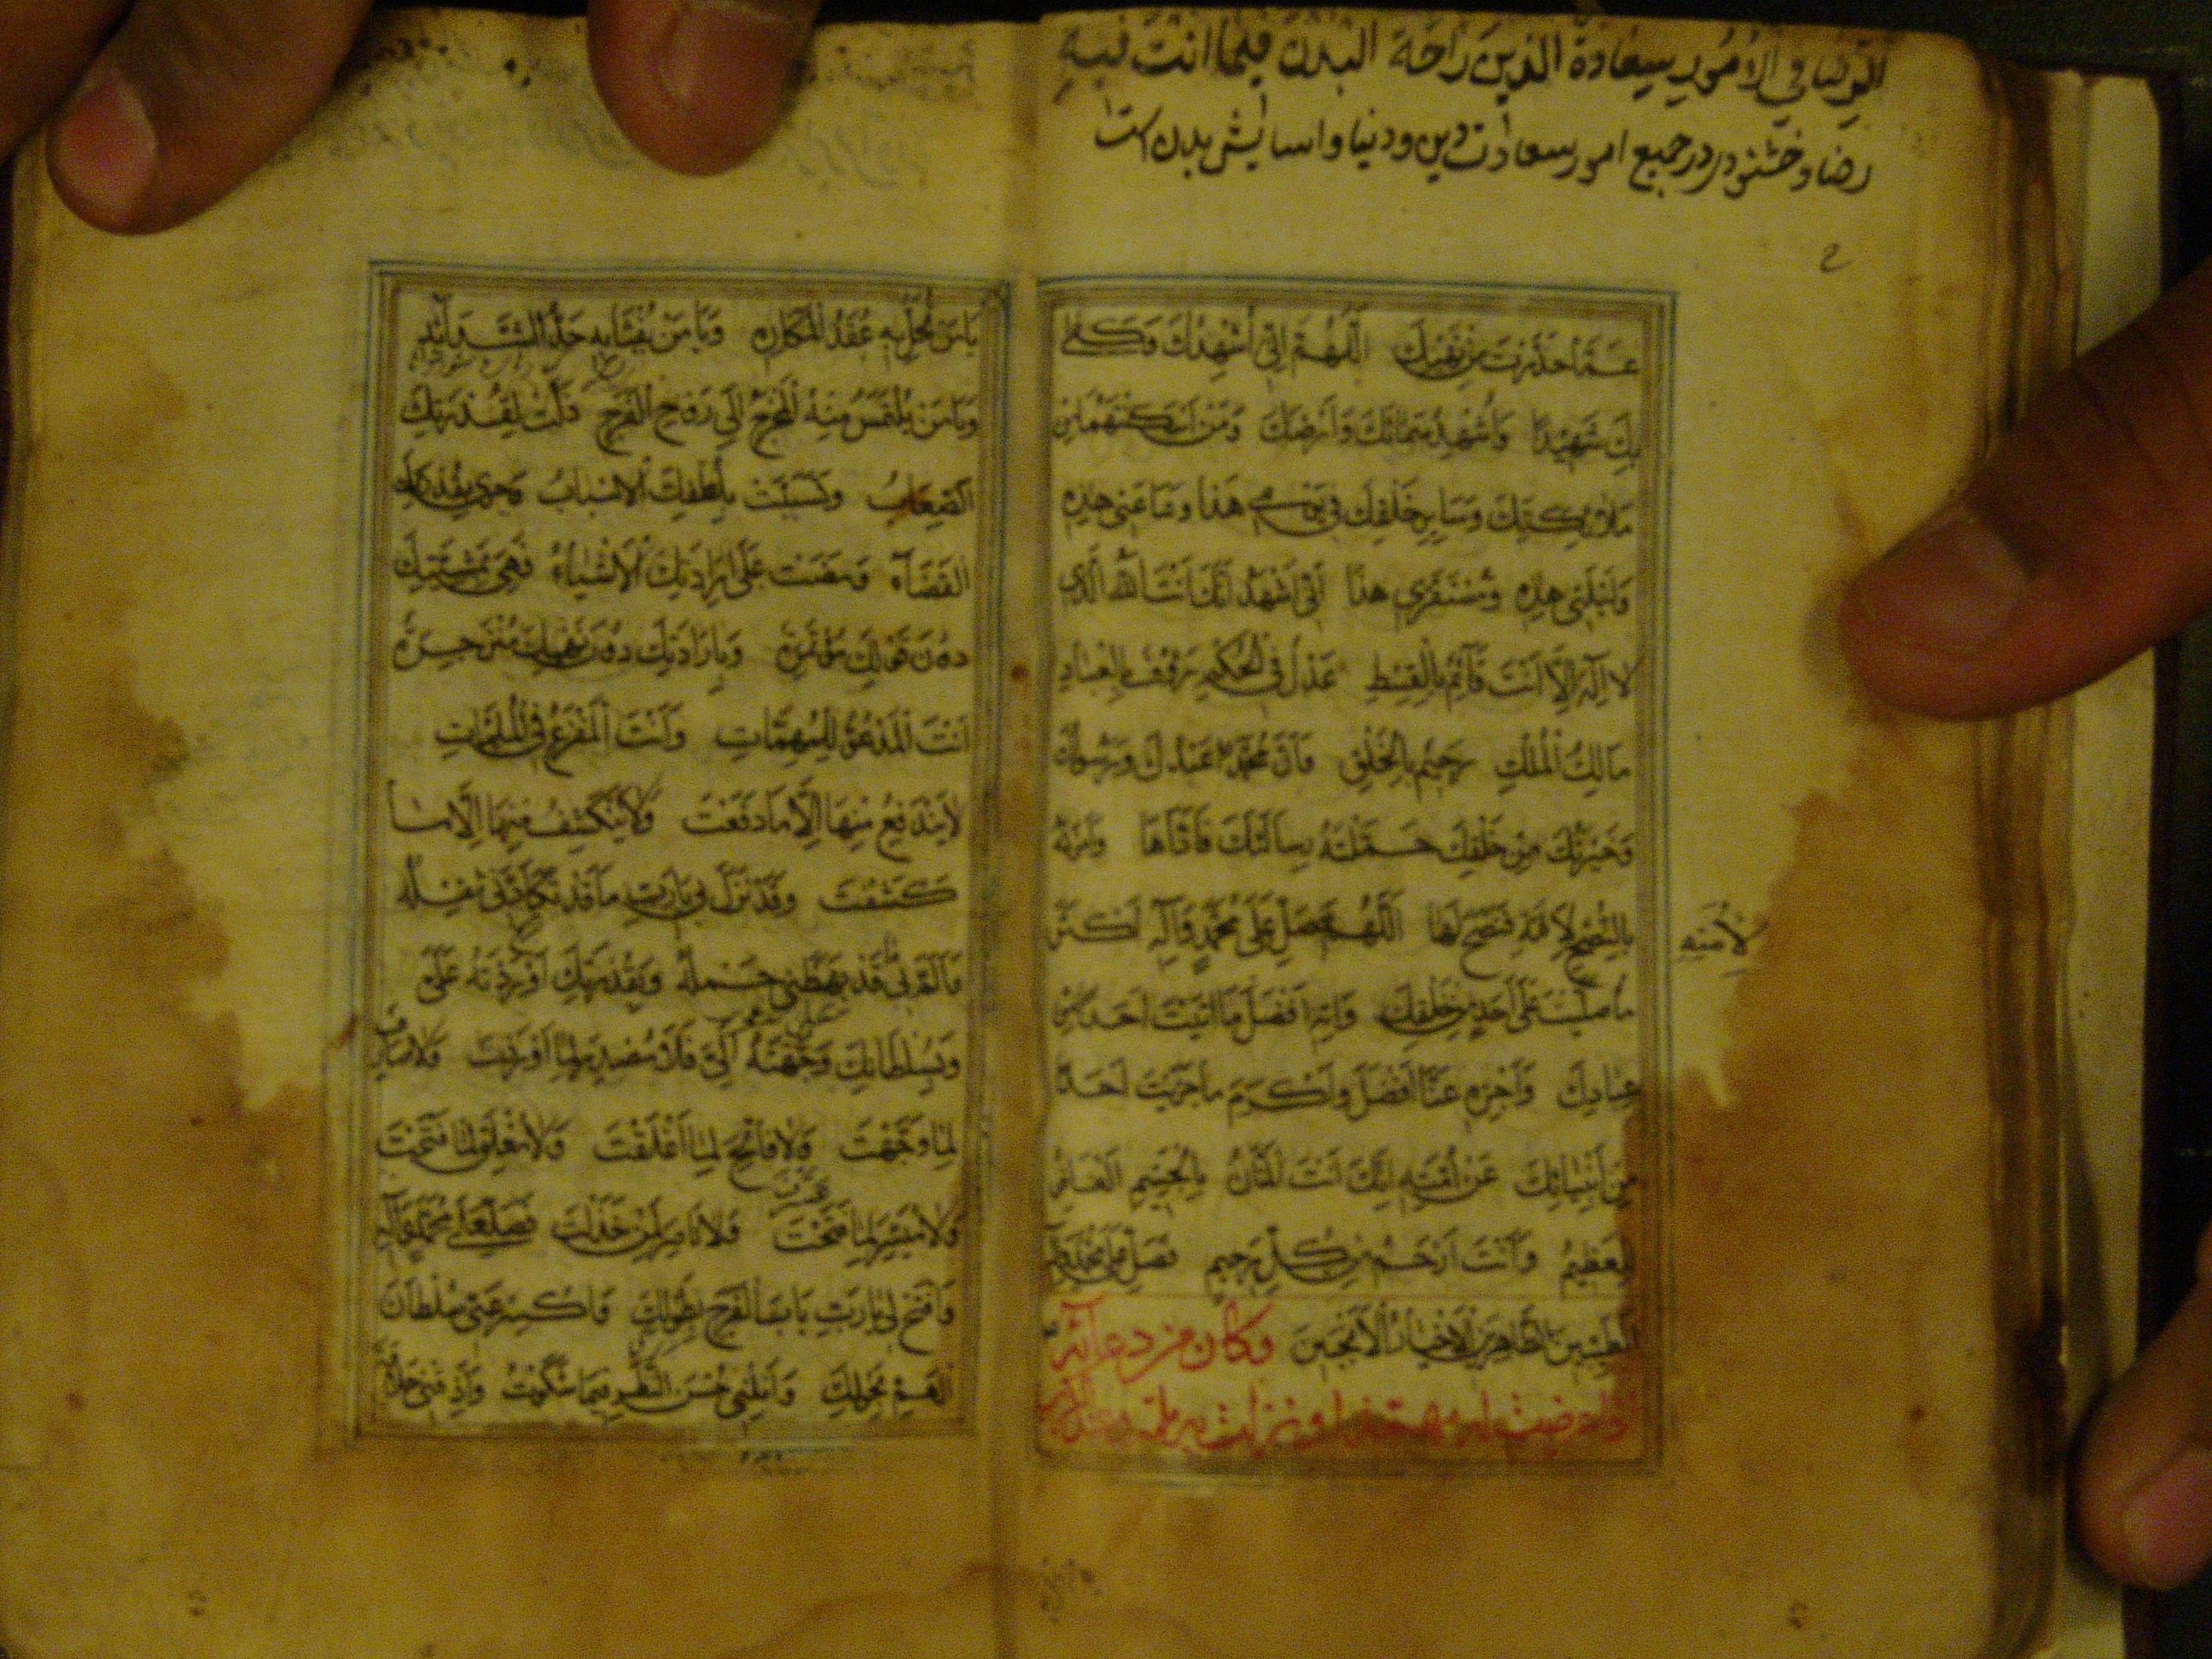 الرضا في الأمور سعادة الدين راحة البدن فيما انت فيه
رضا وخشنودی در جمیع امور سعادت دین ودنیا واسایش بدن است
۲
عَمَّا حَذَّرْتَ مِنْ نَهْيِكَ اَللّٰهُمَّ اِنّى اُشْهِدُكَ وَكَفٰى
بِكَ شَهِيْدًا وَاُشْهِدُ سَمَائَكَ وَاَرْضَكَ وَمَنْ اَسْكَنْتَهُمَا مِنْ
مَلٰئِكَتِكَ وَسَايِرِ خَلْقِكَ فى يَوْمى هٰذَا وَسَاعَتى هٰذِهِ
وَلَيْلَتى هٰذِهِ وَمُسْتَقَرّى هٰذَا اَنّى اَشْهَدُ اَنَّكَ اَنْتَ اللّٰهُ الَّذى
لَا اِلٰهَ اِلَّا اَنْتَ قَآئِمٌ بِالْقِسْطِ عَدْلٌ فِى الْحُكْمِ رَؤُفٌ بِالْعِبَادِ
مَالِكُ الْمُلْكِ رَحِيْمٌ بِالْخَلْقِ وَاَنَّ مُحَمَّدًا عَبْدُكَ وَرَسُولُكَ
وَخِيَرَتُكَ مِنْ خَلْقِكَ حَمَّلْتَهُ رِسَالَتَكَ فَاَدَّاهَا وَاَمَرْتَهُ
بِالنُّصْحِ لِاُمَّتِهِ فَنَصَحَ لَهَا اَللّٰهُمَّ فَصَلِّ عَلٰى مُحَمَّدٍ وَآلِهِ اَكْثَرَ
لِاُمَّتِهِ
مَا صَلَّيْتَ عَلٰى اَحَدٍ مِنْ خَلْقِكَ وَآتِهِ اَفْضَلَ مَا اٰتَيْتَ اَحَدًا مِنْ
عِبَادِكَ وَاَجْزِهِ عَنَّا اَفْضَلَ وَاَكْرَمَ مَا جَزَيْتَ اَحَدًا
مِنْ اَنْبِيَائِكَ عَنْ اُمَّتِهِ اِنَّكَ اَنْتَ الْمَنَّانُ بِالْجَسِيْمِ الْغَافِرُ
لِلْعَظِيْمِ وَاَنْتَ اَرْحَمُ مِنْ كُلِّ رَحِيْمٍ فَصَلِّ عَلٰى مُحَمَّدٍ وَآلِهِ
الطَّيِّبِينَ الطَّاهِرِينَ الْاَخْيَارِ الْاَنْجَبِينَ وكان من دعائه
اذا عرضت له مهمة او نزلت به ملمة وعند الكرب
يَا مَنْ تُحَلُّ بِهِ عُقَدُ الْمَكَارِهِ وَيَا مَنْ يُفْثَأُ بِهِ حَدُّ الشَّدَآئِدِ
وَيَا مَنْ يُلْتَمَسُ مِنْهُ الْمَخْرَجُ اِلٰى رَوْحِ الْفَرَجِ ذَلَّتْ لِقُدْرَتِكَ
الصِّعَابُ وَتَسَبَّبَتْ بِلُطْفِكَ الْاَسْبَابُ وَجَرٰى بِقُدْرَتِكَ
الْقَضَآءُ وَمَضَتْ عَلٰى اِرَادَتِكَ الْاَشْيَاءُ فَهِىَ بِمَشِيَّتِكَ
دُونَ قَوْلِكَ مُؤْتَمِرَةٌ وَبِاِرَادَتِكَ دُونَ نَهْيِكَ مُنْزَجِرَةٌ
اَنْتَ الْمَدْعُوُّ لِلْمُهِمَّاتِ وَاَنْتَ الْمَفْزَعُ فِى الْمُلِمَّاتِ
لَا يَنْدَفِعُ مِنْهَا اِلَّا مَا دَفَعْتَ وَلَا يَنْكَشِفُ مِنْهَا اِلَّا مَا
كَشَفْتَ وَقَدْ نَزَلَ بى يَا رَبِّ مَا قَدْ تَكَأَّدَنى ثِقْلُهُ
مَا اَلَمَّ بى قَدْ بَهَظَنى حَمْلُهُ وَبِقُدْرَتِكَ اَوْرَدْتَهُ عَلَىَّ
وَبِسُلْطَانِكَ وَجَّهْتَهُ اِلَىَّ فَلَا مُصْدِرَ لِمَا اَوْرَدْتَ وَلَا صَارِفَ
لِمَا وَجَّهْتَ وَلَا فَاتِحَ لِمَا اَغْلَقْتَ وَلَا مُغْلِقَ لِمَا فَتَحْتَ
وَلَا مُيَسِّرَ لِمَا عَسَّرْتَ وَلَا نَاصِرَ لِمَنْ خَذَلْتَ فَصَلِّ عَلٰى مُحَمَّدٍ وَآلِهِ
وَافْتَحْ لى يَا رَبِّ بَابَ الْفَرَجِ بِطَوْلِكَ وَاكْسِرْ عَنّى سُلْطَانَ
الْهَمِّ بِحَوْلِكَ وَاَنِلْنى حُسْنَ النَّظَرِ فيمَا شَكَوْتُ وَاَذِقْنى حَلَاوَةَ